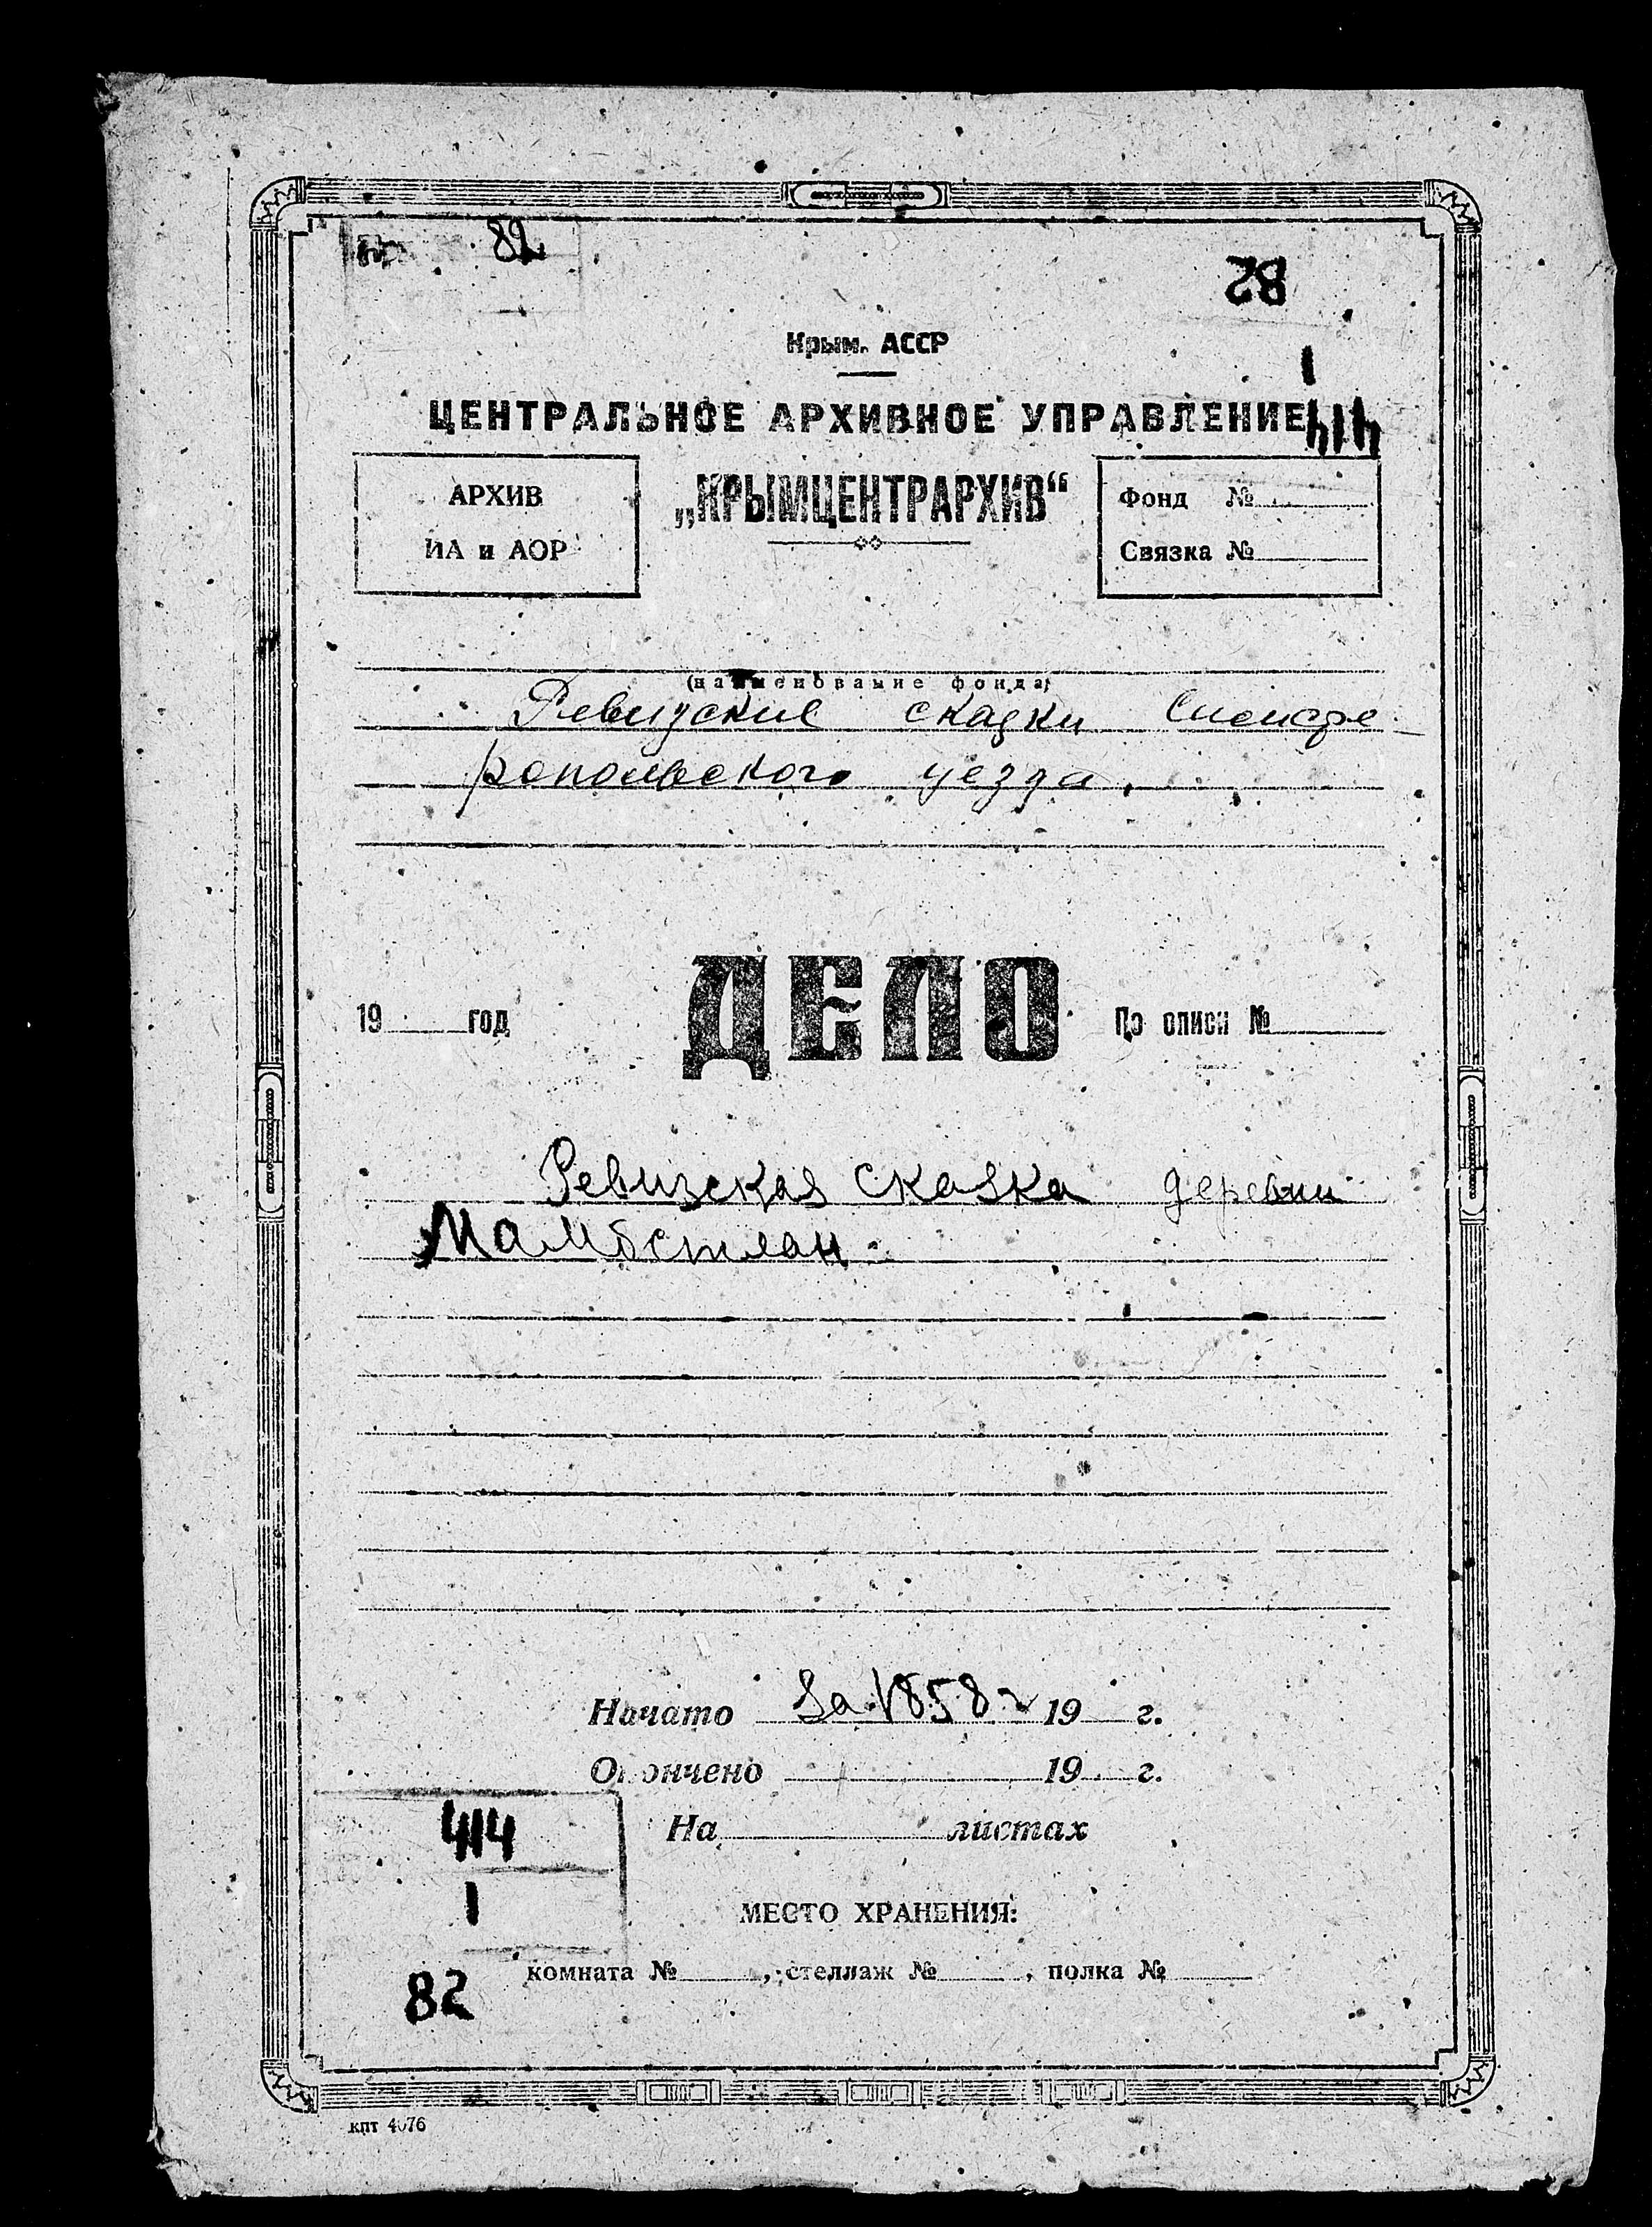 82
82
1
414
Крым. АССР
ЦЕНТРАЛЬНОЕ АРХИВНОЕ УПРАВЛЕНИЕ
„КРЫМЦЕНТРАРХИВ“
АРХИВ
ИА и АОР
Фонд №
Связка №
(наименование фонда)
Ревизские сказки Симфе-
ропольского уезда.
19 год
ДЕЛО
По описи №
Ревизская сказка деревни
Мамбетлан.
Начато За 1858 г 19 г.
Окончено 19 г.
На листах
414
1
82
МЕСТО ХРАНЕНИЯ:
комната №, стеллаж №, полка №
кпт 4076